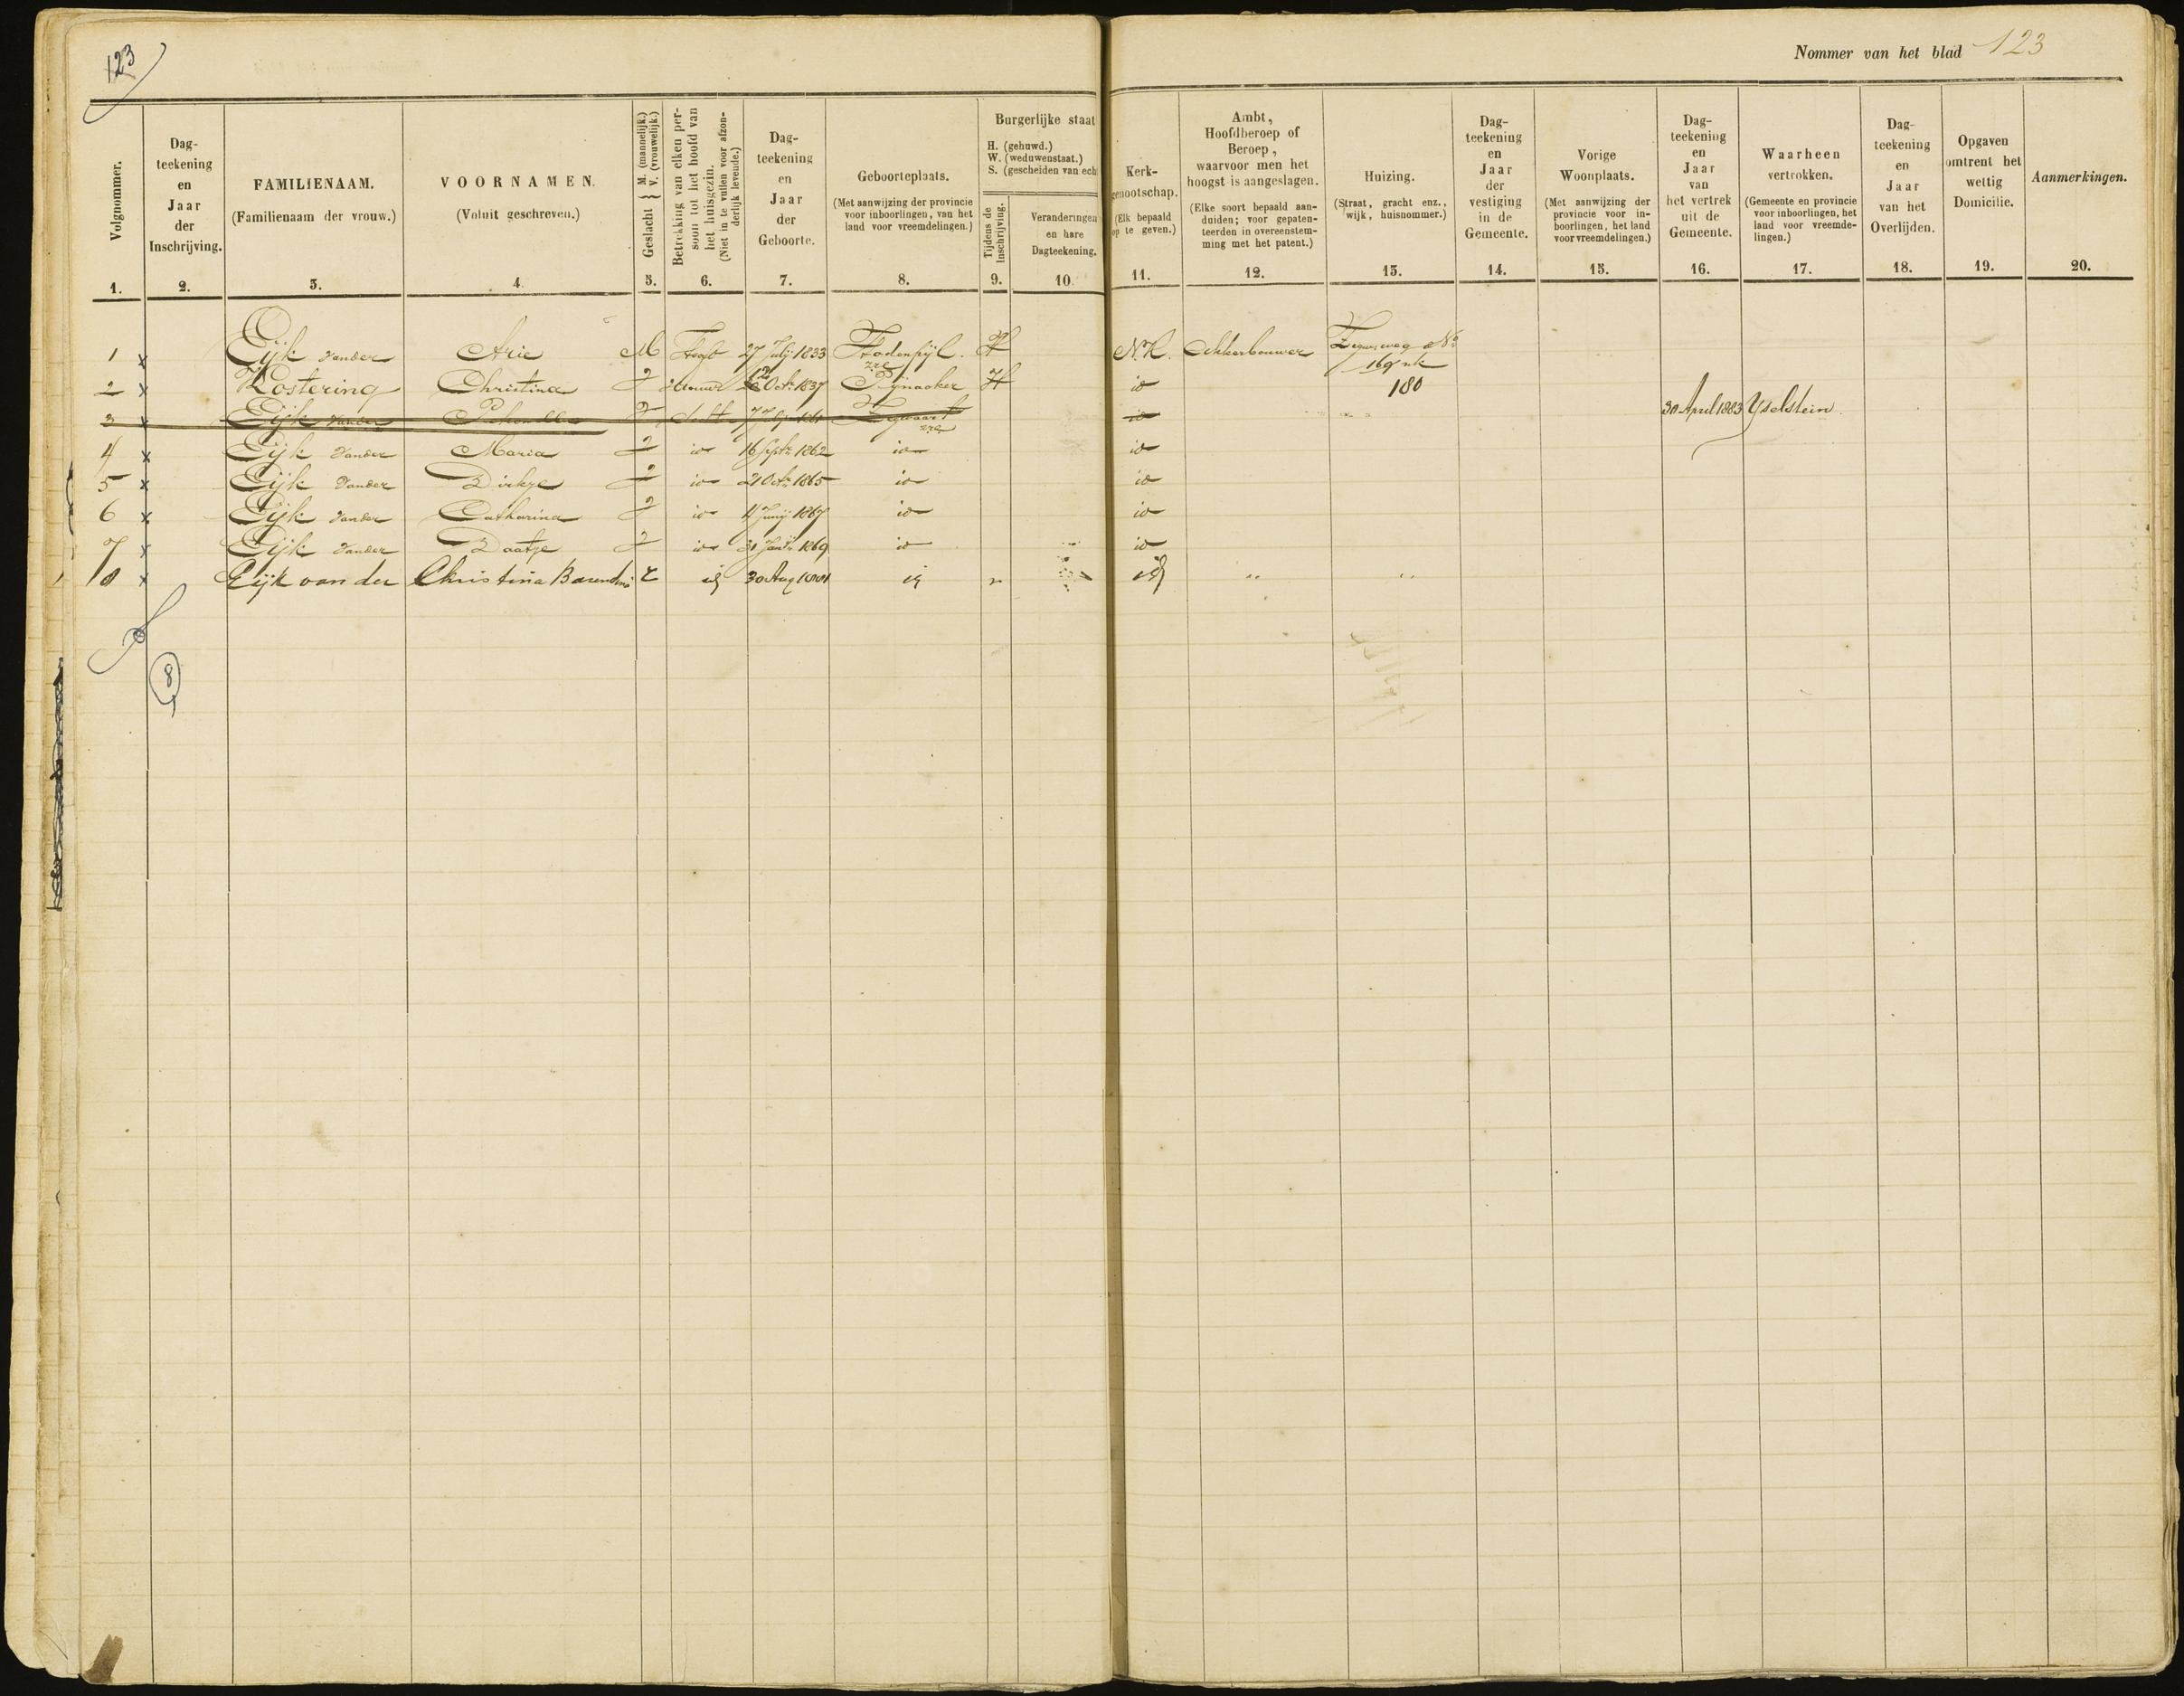 123
Nommer van het blad 123
Volgnommer.
Dag-
teekening
en
Jaar
der
Inschrijving.
FAMILIENAAM.
(Familienaam der vrouw.)
VOORNAMEN.
(Voluit geschreven.)
Geslacht { M. (mannelijk.)
V. (vrouwelijk.)
Betrekking van elken per-
soon tot het hoofd van
het huisgezin.
(Niet in te vullen voor afzon-
derlijk levende.)
Dag-
teekening
en
Jaar
der
Geboorte.
Geboorteplaats.
(Met aanwijzing der provincie
voor inboorlingen, van het
land voor vreemdelingen.)
Burgerlijke staat
H. (gehuwd.)
W. (weduwenstaat.)
S. (gescheiden van ech
Tijdens de
Inschrijving.
Veranderingen
en hare
Dagteekening.
Kerk-
genootschap.
(Elk bepaald
op te geven.)
Ambt,
Hoofdberoep of
Beroep,
waarvoor men het
hoogst is aangeslagen.
(Elke soort bepaald aan-
duiden; voor gepaten-
teerden in overeenstem-
ming met het patent.)
Huizing.
(Straat, gracht enz.,
wijk, huisnommer.)
Dag-
teekening
en
Jaar
der
vestiging
in de
Gemeente.
Vorige
Woonplaats.
(Met aanwijzing der
provincie voor in-
boorlingen, het land
voor vreemdelingen.)
Dag-
teekening
en
Jaar
van
het vertrek
uit de
Gemeente.
Waarheen
vertrokken.
(Gemeente en provincie
voor inboorlingen, het
land voor vreemde-
lingen.)
Dag-
teekening
en
Jaar
van het
Overlijden.
Opgaven
omtrent het
wettig
Domicilie.
Aanmerkingen.
1. 2. 3. 4. 5. 6. 7. 8. 9. 10. 11. 12. 13. 14. 15. 16. 17. 18. 19. 20.
1 x Eijk van der Arie M Hoofd 27 Julij 1833 Hodenpijl. H N.H. Akkerbouwer Zegwaweg No
169
2 x Kostering Christina Vrouw Octr 1837 Pijnacker H io 180
3 x Eijk van der V Zegwaart io 30 April 1883 Yselstein
4 x Eijk van der Maria V io 16 Septr 1862 io io
5 x Eijk van der Dirkje V io 21 Octr 1865 io io
6 x Eijk van der Catharina V io 4 Junij 1867 io io
7 x Eijk van der Daatje V io 31 Janr 1869 io io
8 x Eijk van der Christina 30 Aug " "
8